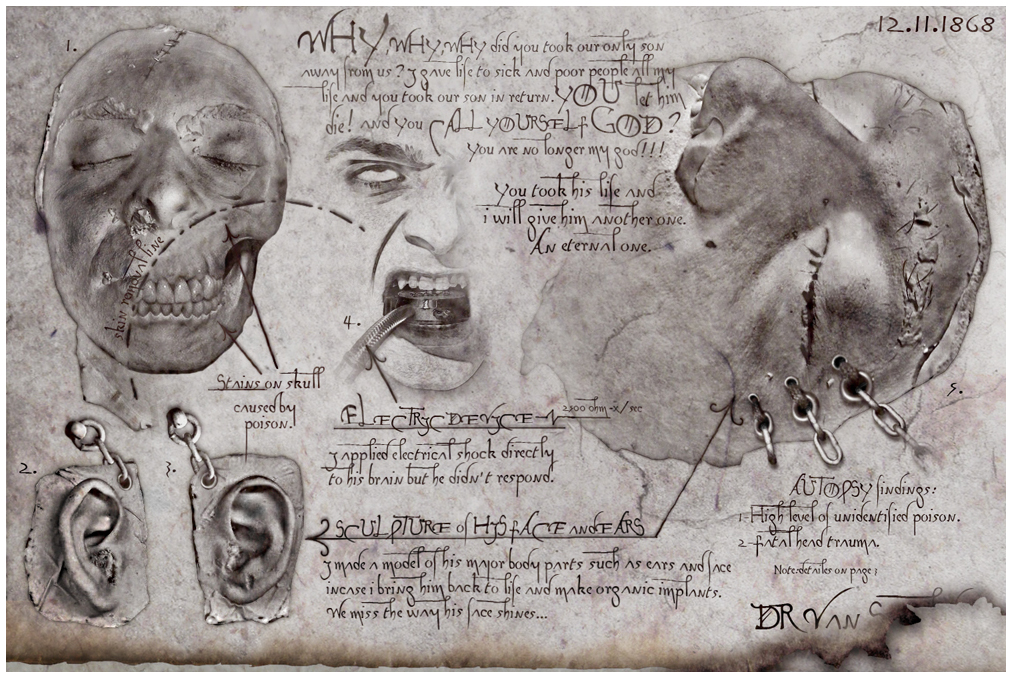 12.11.1868
1.
WHY, WHY, WHY did you took our only son
away from us? I gave life to sick and poor people all my
life and you took our son in return. YOU let him
die! And you CALL YOURSELF GOD?
you are no longer my god!!!
You took his life and
i will give him another one.
An eternal one.
skin removal line
4.
Stains on skull
caused by
poison.
ELECTRIC DEVICE 2500 ohm -x/sec
I applied electrical shock directly
to his brain but he didn't respond.
5.
2.
3.
SCULPTURE of HIS FACE and EARS
I made a model of his major body parts such as ears and face
incase i bring him back to life and make organic implants.
We miss the way his face shines...
AUTOPSY findings:
1. High level of unidentified poison.
2. fatal head trauma.
Note: detailes on page ;
DR VAN